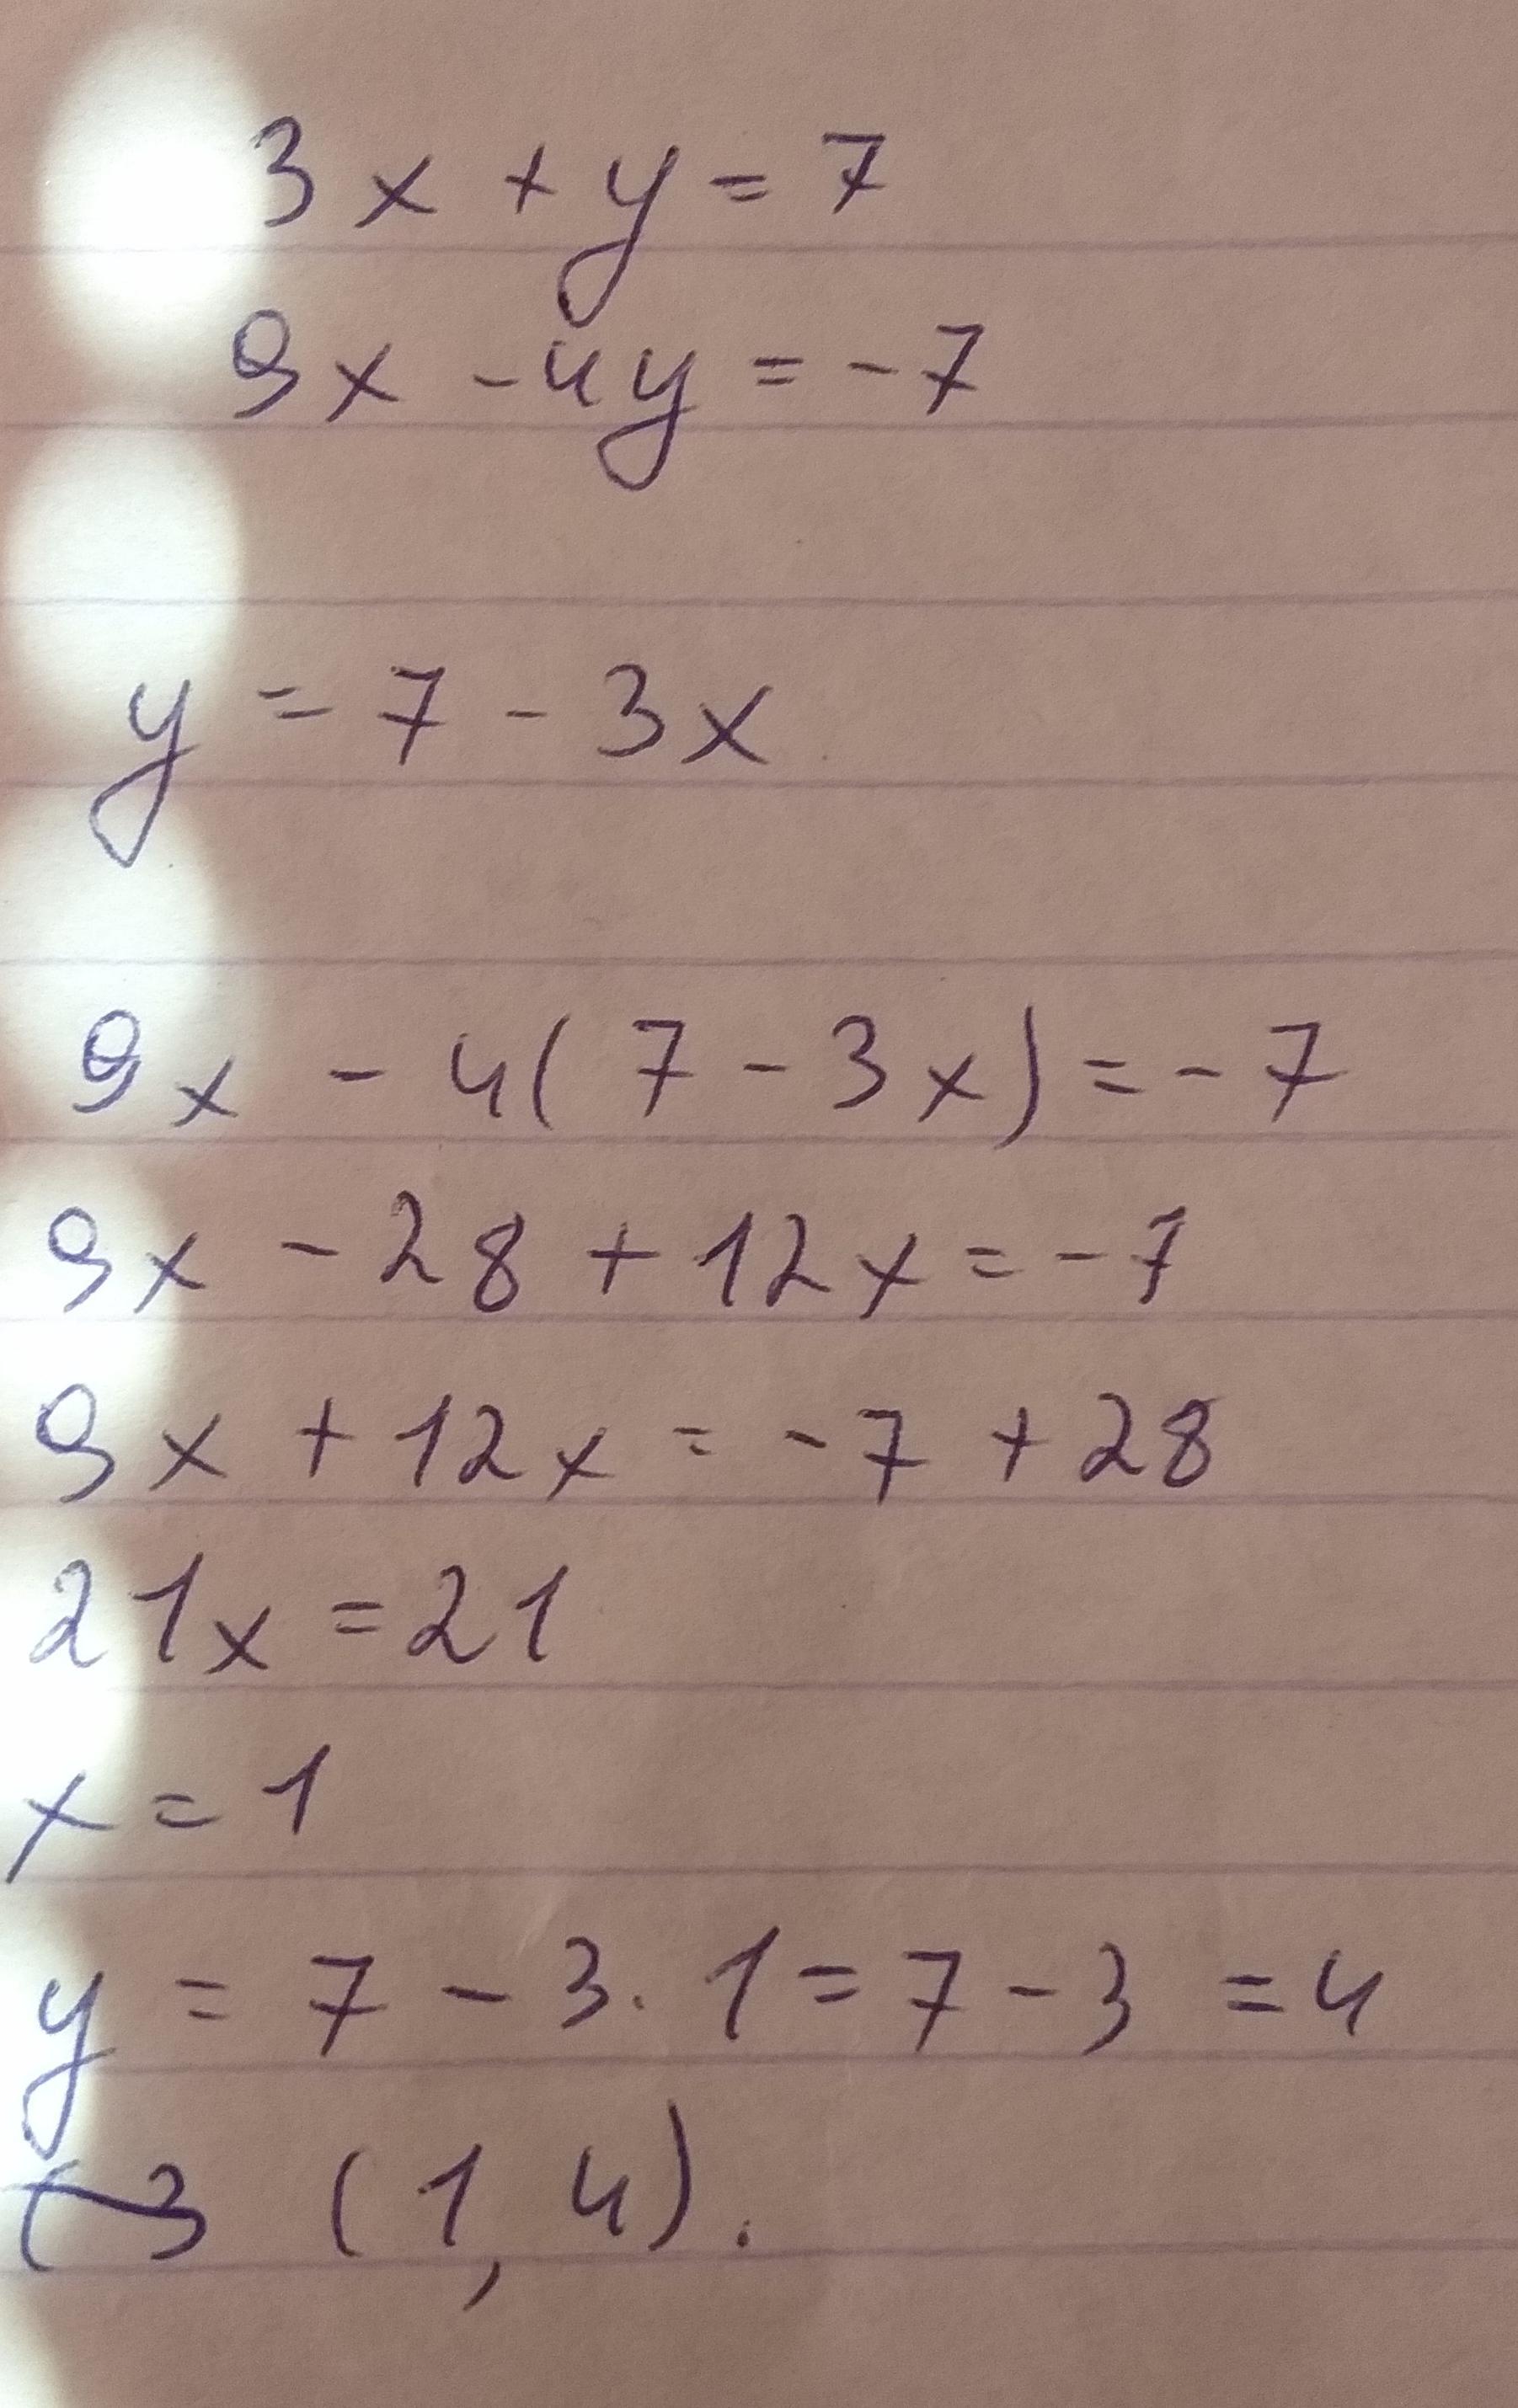 3x + y = 7
9x - 4y = -7
y = 7 - 3x
9x - 4(7 - 3x) = -7
9x - 28 + 12x = -7
9x + 12x = -7 + 28
21x = 21
x = 1
y = 7 - 3 . 1 = 7 - 3 = 4
(1, 4).